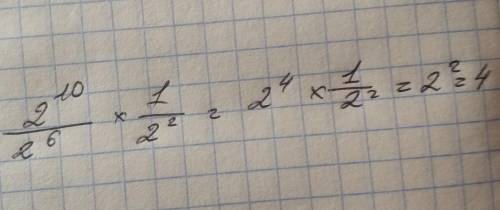 2^10/2^6 × 1/2^2 = 2^4 × 1/2^2 = 2^2 = 4